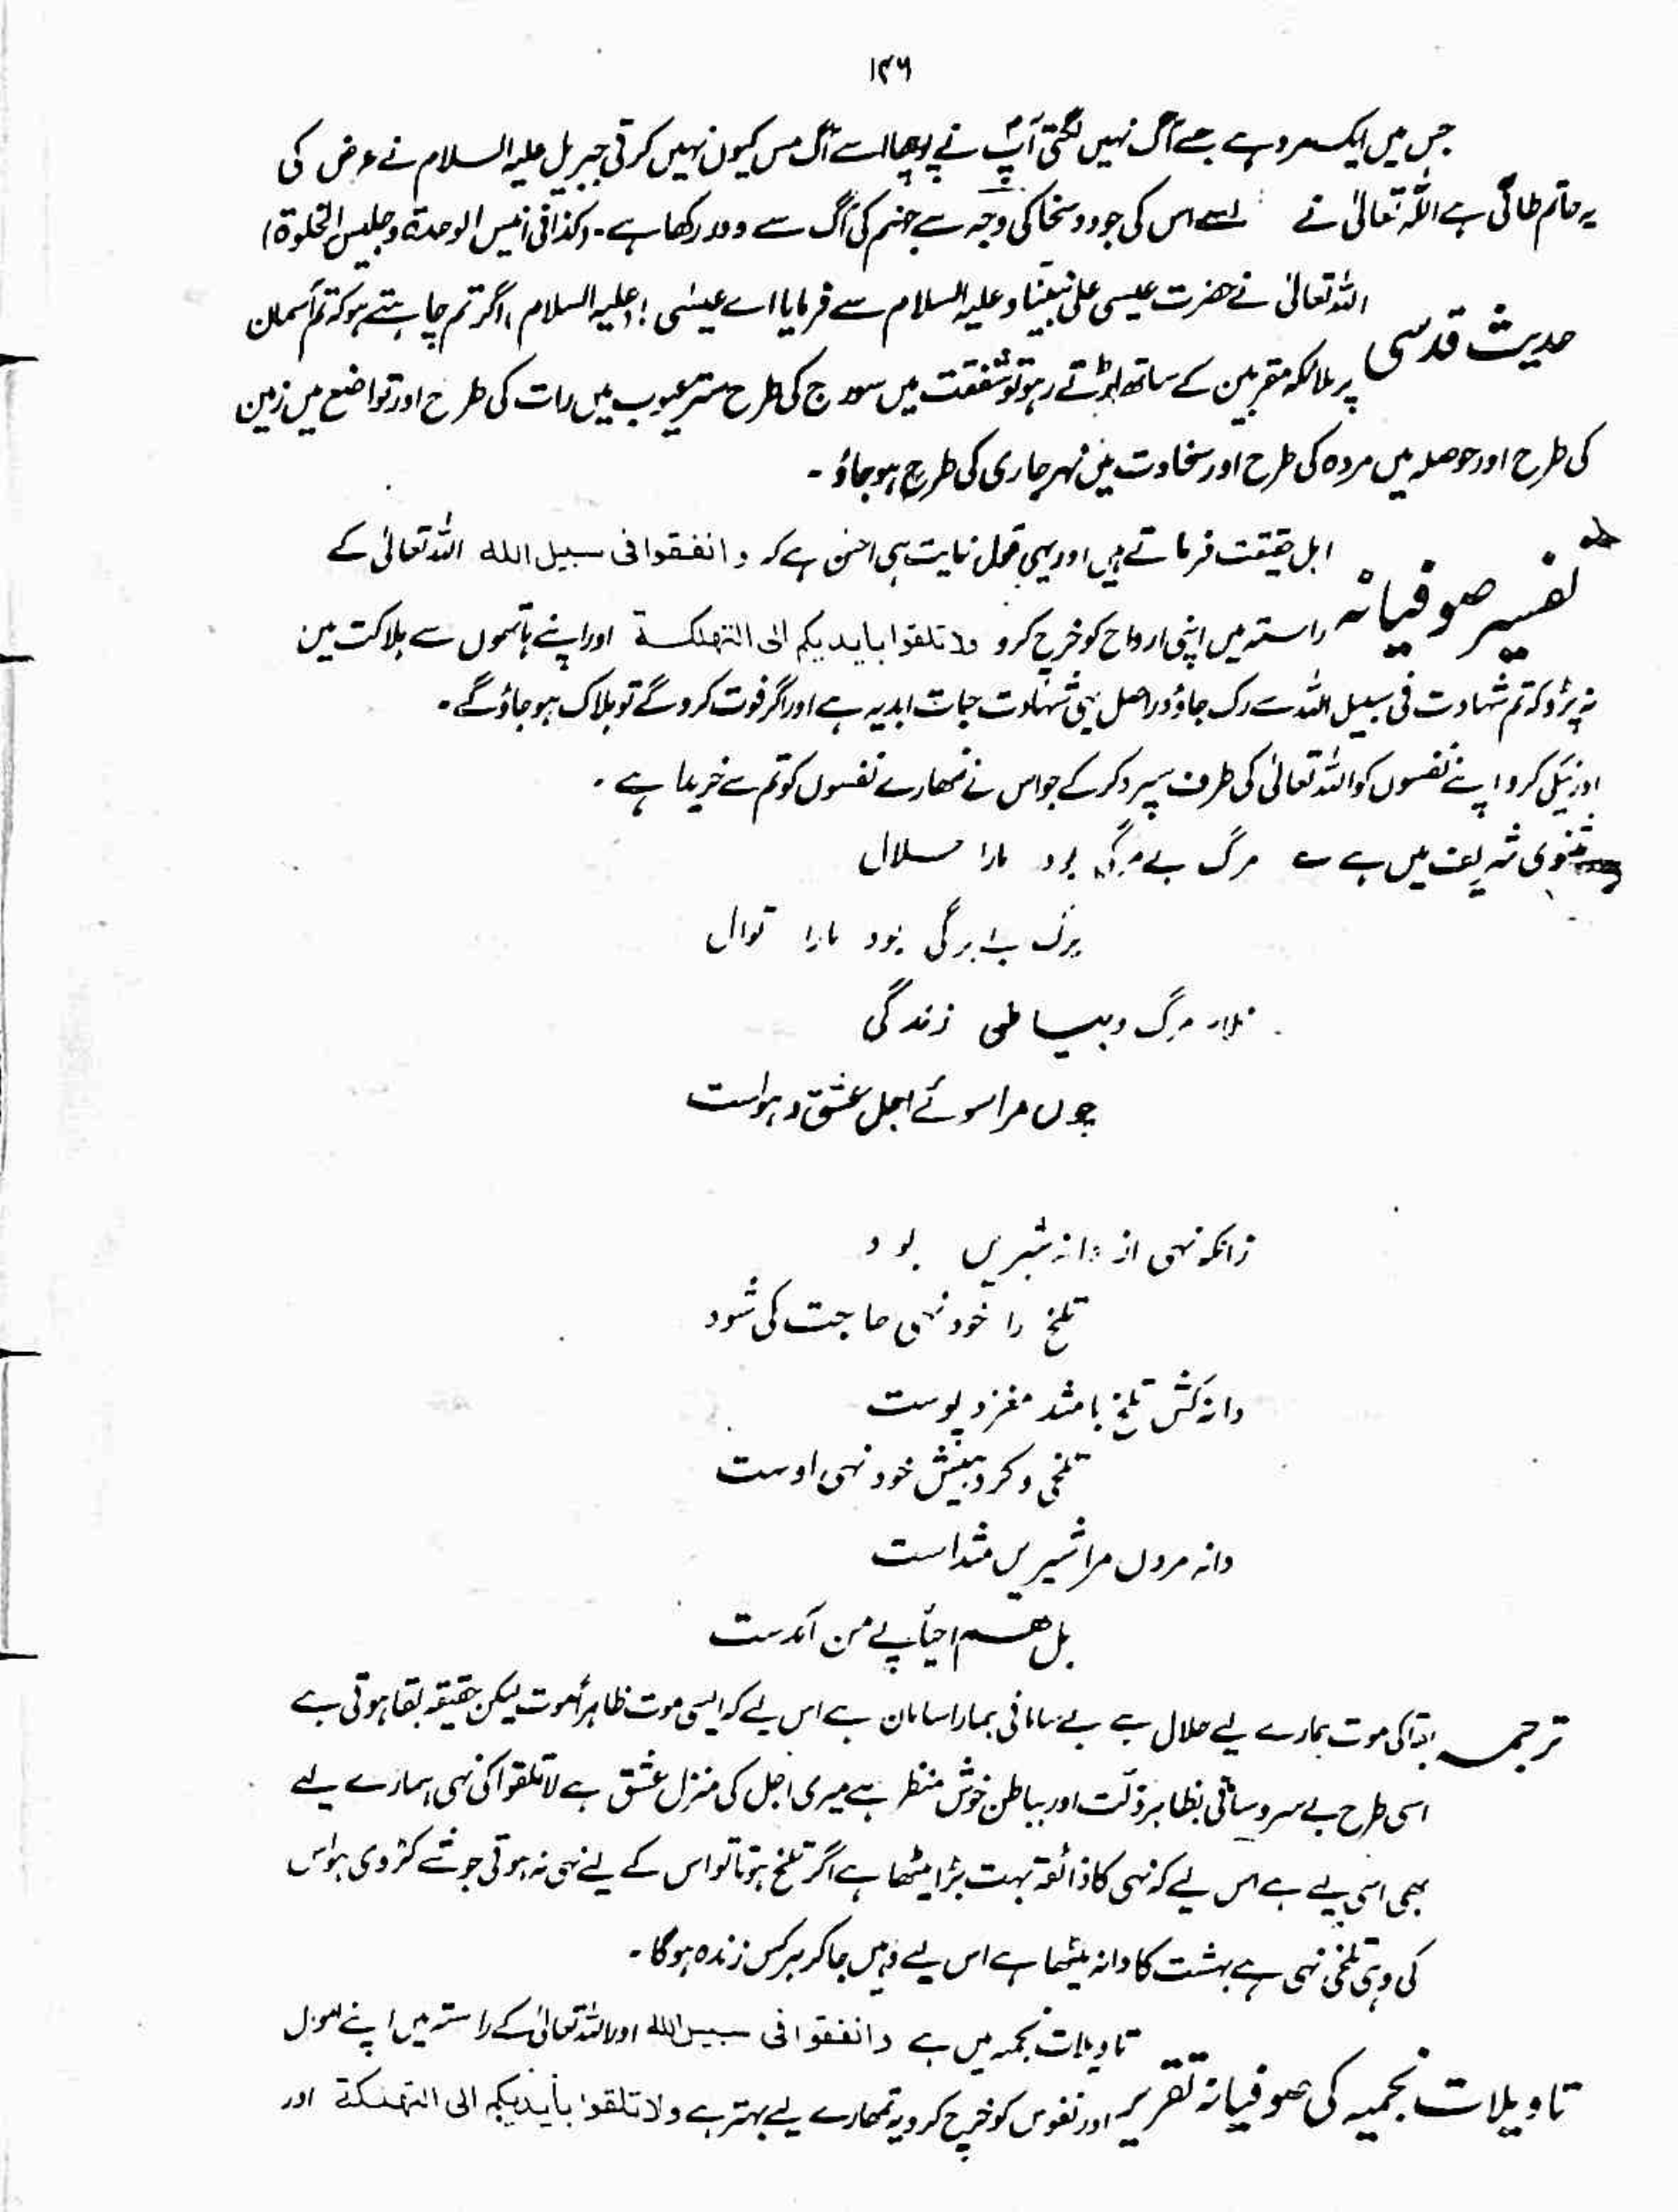 ۱۴۶
جس میں ایک مرد ہے جسے آگ نہیں لگتی آپؐ نے پوچھا اسے آگ مس کیوں نہیں کرتی جبریل علیہ السلام نے عرض کی
یہ حاتم طائی ہے اللہ تعالیٰ نے اسے اس کی جود و سخا کی وجہ سے جہنم کی آگ سے دور رکھا ہے۔ (کذا فی انیس الوحدۃ وجلیس الخلوۃ)
حدیث قدسی اللہ تعالیٰ نے حضرت عیسی علیٰ نبینا وعلیہ السلام سے فرمایا اے عیسٰی! (علیہ السلام) اگر تم چاہتے ہو کہ تم آسمان
پر ملائکہ مقربین کے ساتھ اڑتے رہو تو شفقت میں سورج کی طرح ستر عیوب میں رات کی طرح اور تواضع میں زمین
کی طرح اور حوصلہ میں مردہ کی طرح اور سخاوت میں نہر جاری کی طرح ہو جاؤ۔
تفسیر صوفیانہ اہل حقیقت فرماتے ہیں اور یہی قول نہایت ہی احسن ہے کہ وانفقوا فی سبیل اللہ اللہ تعالیٰ کے
راستہ میں اپنی ارواح کو خرچ کرو ولا تلقوا بایدیکم الی التھلکۃ اور اپنے ہاتھوں سے ہلاکت میں
نہ پڑو کہ تم شہادت فی سبیل اللہ سے رک جاؤ دراصل یہی شہادت حیات ابدیہ ہے اور اگر فوت کرو گے تو ہلاک ہو جاؤ گے۔
اور نیکی کرو اپنے نفسوں کو اللہ تعالیٰ کی طرف سپرد کر کے جو اس نے تمھارے نفسوں کو تم سے خریدا ہے۔
مثنوی شریف میں ہے ؎ مرگ بے مرگی بود مارا حلال
برگ بے برگی بود مارا نوال
مرگ و زندگی
چوں مرا سوئے اجل عشق و ہواست
زانکہ نہی از دانہ شیریں بود
تلخ را خود نہی حاجت کی شود
دانہ کش تلخ باشد مغز و پوست
تلخی و خود نہی اوست
دانہ مردن مرا شیریں شداست
بل ھم احیاء پے من آمدست
ترجمہ کی موت ہمارے لیے حلال ہے بے سامانی ہمارا سامان ہے اس لیے کہ ایسی موت ظاہراً موت لیکن حقیقۃ بقا ہوتی ہے
اسی طرح بے سر و بظاہر ذلّت اور بباطن خوش منظر ہے میری اجل کی منزل عشق ہے لا تلقوا کی نہی ہمارے لیے
بھی اسی لیے ہے اس لیے کہ نہی کا ذائقہ بہت بڑا میٹھا ہے اگر تلخ ہوتا تو اس کے لیے نہی نہ ہوتی جو شے کڑوی ہو اس
کی وہی تلخی نہی ہے بہشت کا دانہ میٹھا ہے اس لیے وہیں جا کر ہر کس زندہ ہوگا۔
تاویلات نجمیہ کی صوفیانہ تقریر تاویلات نجمیہ میں ہے وانفقوا فی سبیل اللہ اور اللہ تعالیٰ کے راستہ میں اپنے اموال
اور نفوس کو خرچ کرو یہ تمھارے لیے بہتر ہے ولا تلقوا بأیدیکم الی التھلکۃ اور